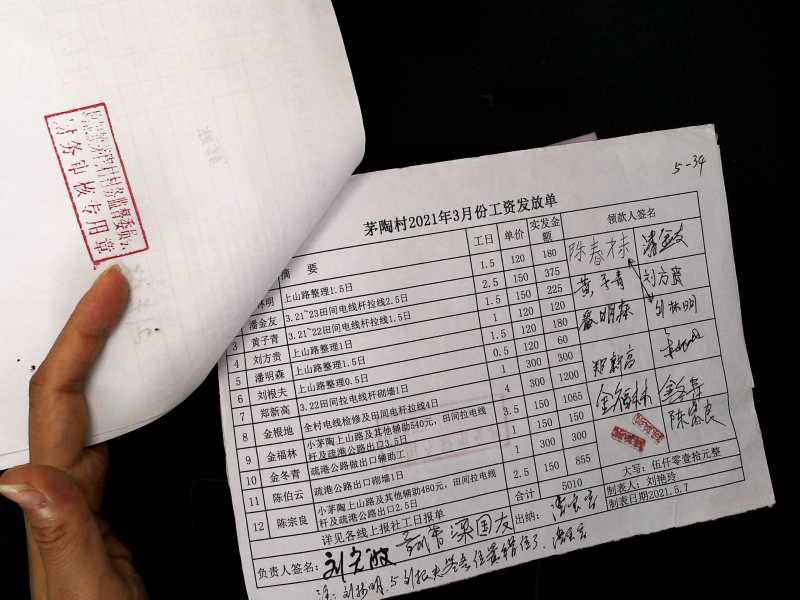 财务审核专用章
5-34
茅陶村2021年3月份工资发放单
摘 要 工日 单价 实发金额 领款人签名
林明 上山路整理1.5日 1.5 120 180
潘金友 3.21~23田间电线杆拉线2.5日 2.5 150 375
3 黄子青 3.21~22田间电线杆拉线1.5日 1.5 150 225
4 刘方贵 上山路整理1日 1 120 120
5 潘明森 上山路整理1.5日 1.5 120 180
6 刘根夫 上山路整理0.5日 0.5 120 60
7 郑新高 3.22田间拉电线杆砌墙1日 1 300 300
8 金根地 全村电线检修及田间电杆拉线4日 4 300 1200
9 金福林 小茅陶上山路及其他辅助540元,田间拉电线杆及疏港公路出口3.5日 3.5 150 1065
10 金冬青 疏港公路做出口辅助工 1 150 150
11 陈伯云 疏港公路出口砌墙1日 1 300 300
12 陈宗良 小茅陶上山路及其他辅助480元,田间拉电线杆及疏港公路出口2.5日 2.5 150 855
详见各线上报社工日报单 合计 5010 大写:伍仟零壹拾元整
负责人签名: 出纳: 制表人:刘艳玲
制表日期2021.5.7
潘金友
黄子青 刘方贵
潘明森 刘林明
郑新高
金福林 金冬青
陈宗良
梁国友